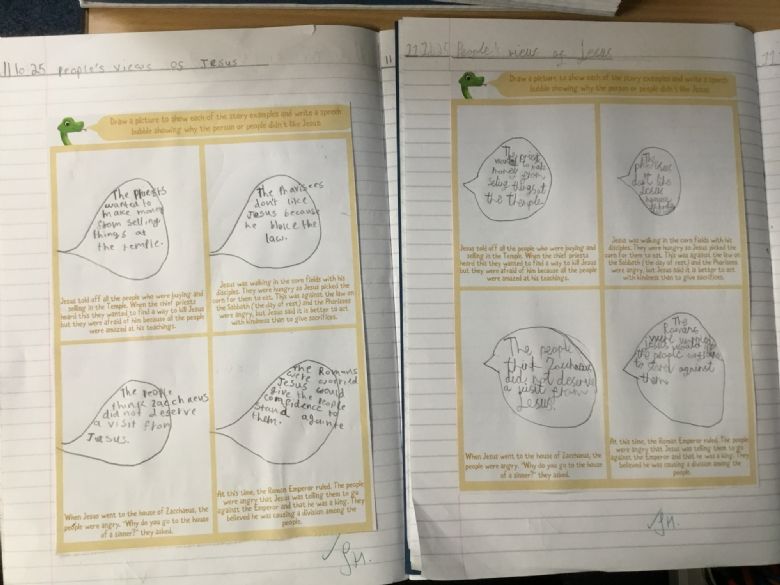 11.10.25 People's views os Jesus
Draw a picture to show each of the story examples and write a speech
bubble showing why the person or people didn't like Jesus.
The Priests
wanted to
make money
from selling
things at
the temple.
Jesus told off all the people who were buying and
selling in the Temple. When the chief priests
heard this they wanted to find a way to kill Jesus
but they were afraid of him because all the people
were amazed at his teachings.
The Pharisees
don't like
Jesus because
he bloke the
law.
Jesus was walking in the corn fields with his
disciples. They were hungry so Jesus picked the
corn for them to eat. This was against the law on
the Sabbath (the day of rest) and the Pharisees
were angry, but Jesus said it is better to act
with kindness than to give sacrifices.
The people
think Zacchaeus
did not deserve
a visit from
Jesus.
When Jesus went to the house of Zacchaeus, the
people were angry. "Why do you go to the house
of a sinner?" they asked.
The Romans
were worried
Jesus would
give the people
confidence to
stand againte
them.
At this time, the Roman Emperor ruled. The people
were angry that Jesus was telling them to go
against the Emperor and that he was a king. They
believed he was causing a division among the
people.
People's views of Jesus
Draw a picture to show each of the story examples and write a speech
bubble showing why the person or people didn't like Jesus.
The Priest
wanted to make
money from
selling things at
the temple.
Jesus told off all the people who were buying and
selling in the Temple. When the chief priests
heard this they wanted to find a way to kill Jesus
but they were afraid of him because all the people
were amazed at his teachings.
The
dont like
Jesus
Jesus was walking in the corn fields with his
disciples. They were hungry so Jesus picked the
corn for them to eat. This was against the law on
the Sabbath (the day of rest) and the Pharisees
were angry, but Jesus said it is better to act
with kindness than to give sacrifices.
The people
think Zacchaeus
did not deserve
a visit from
Jesus.
When Jesus went to the house of Zacchaeus, the
people were angry. "Why do you go to the house
of a sinner?" they asked.
The
Romans
were
Jesus would
the people
to stand against
them
At this time, the Roman Emperor ruled. The people
were angry that Jesus was telling them to go
against the Emperor and that he was a king. They
believed he was causing a division among the
people.